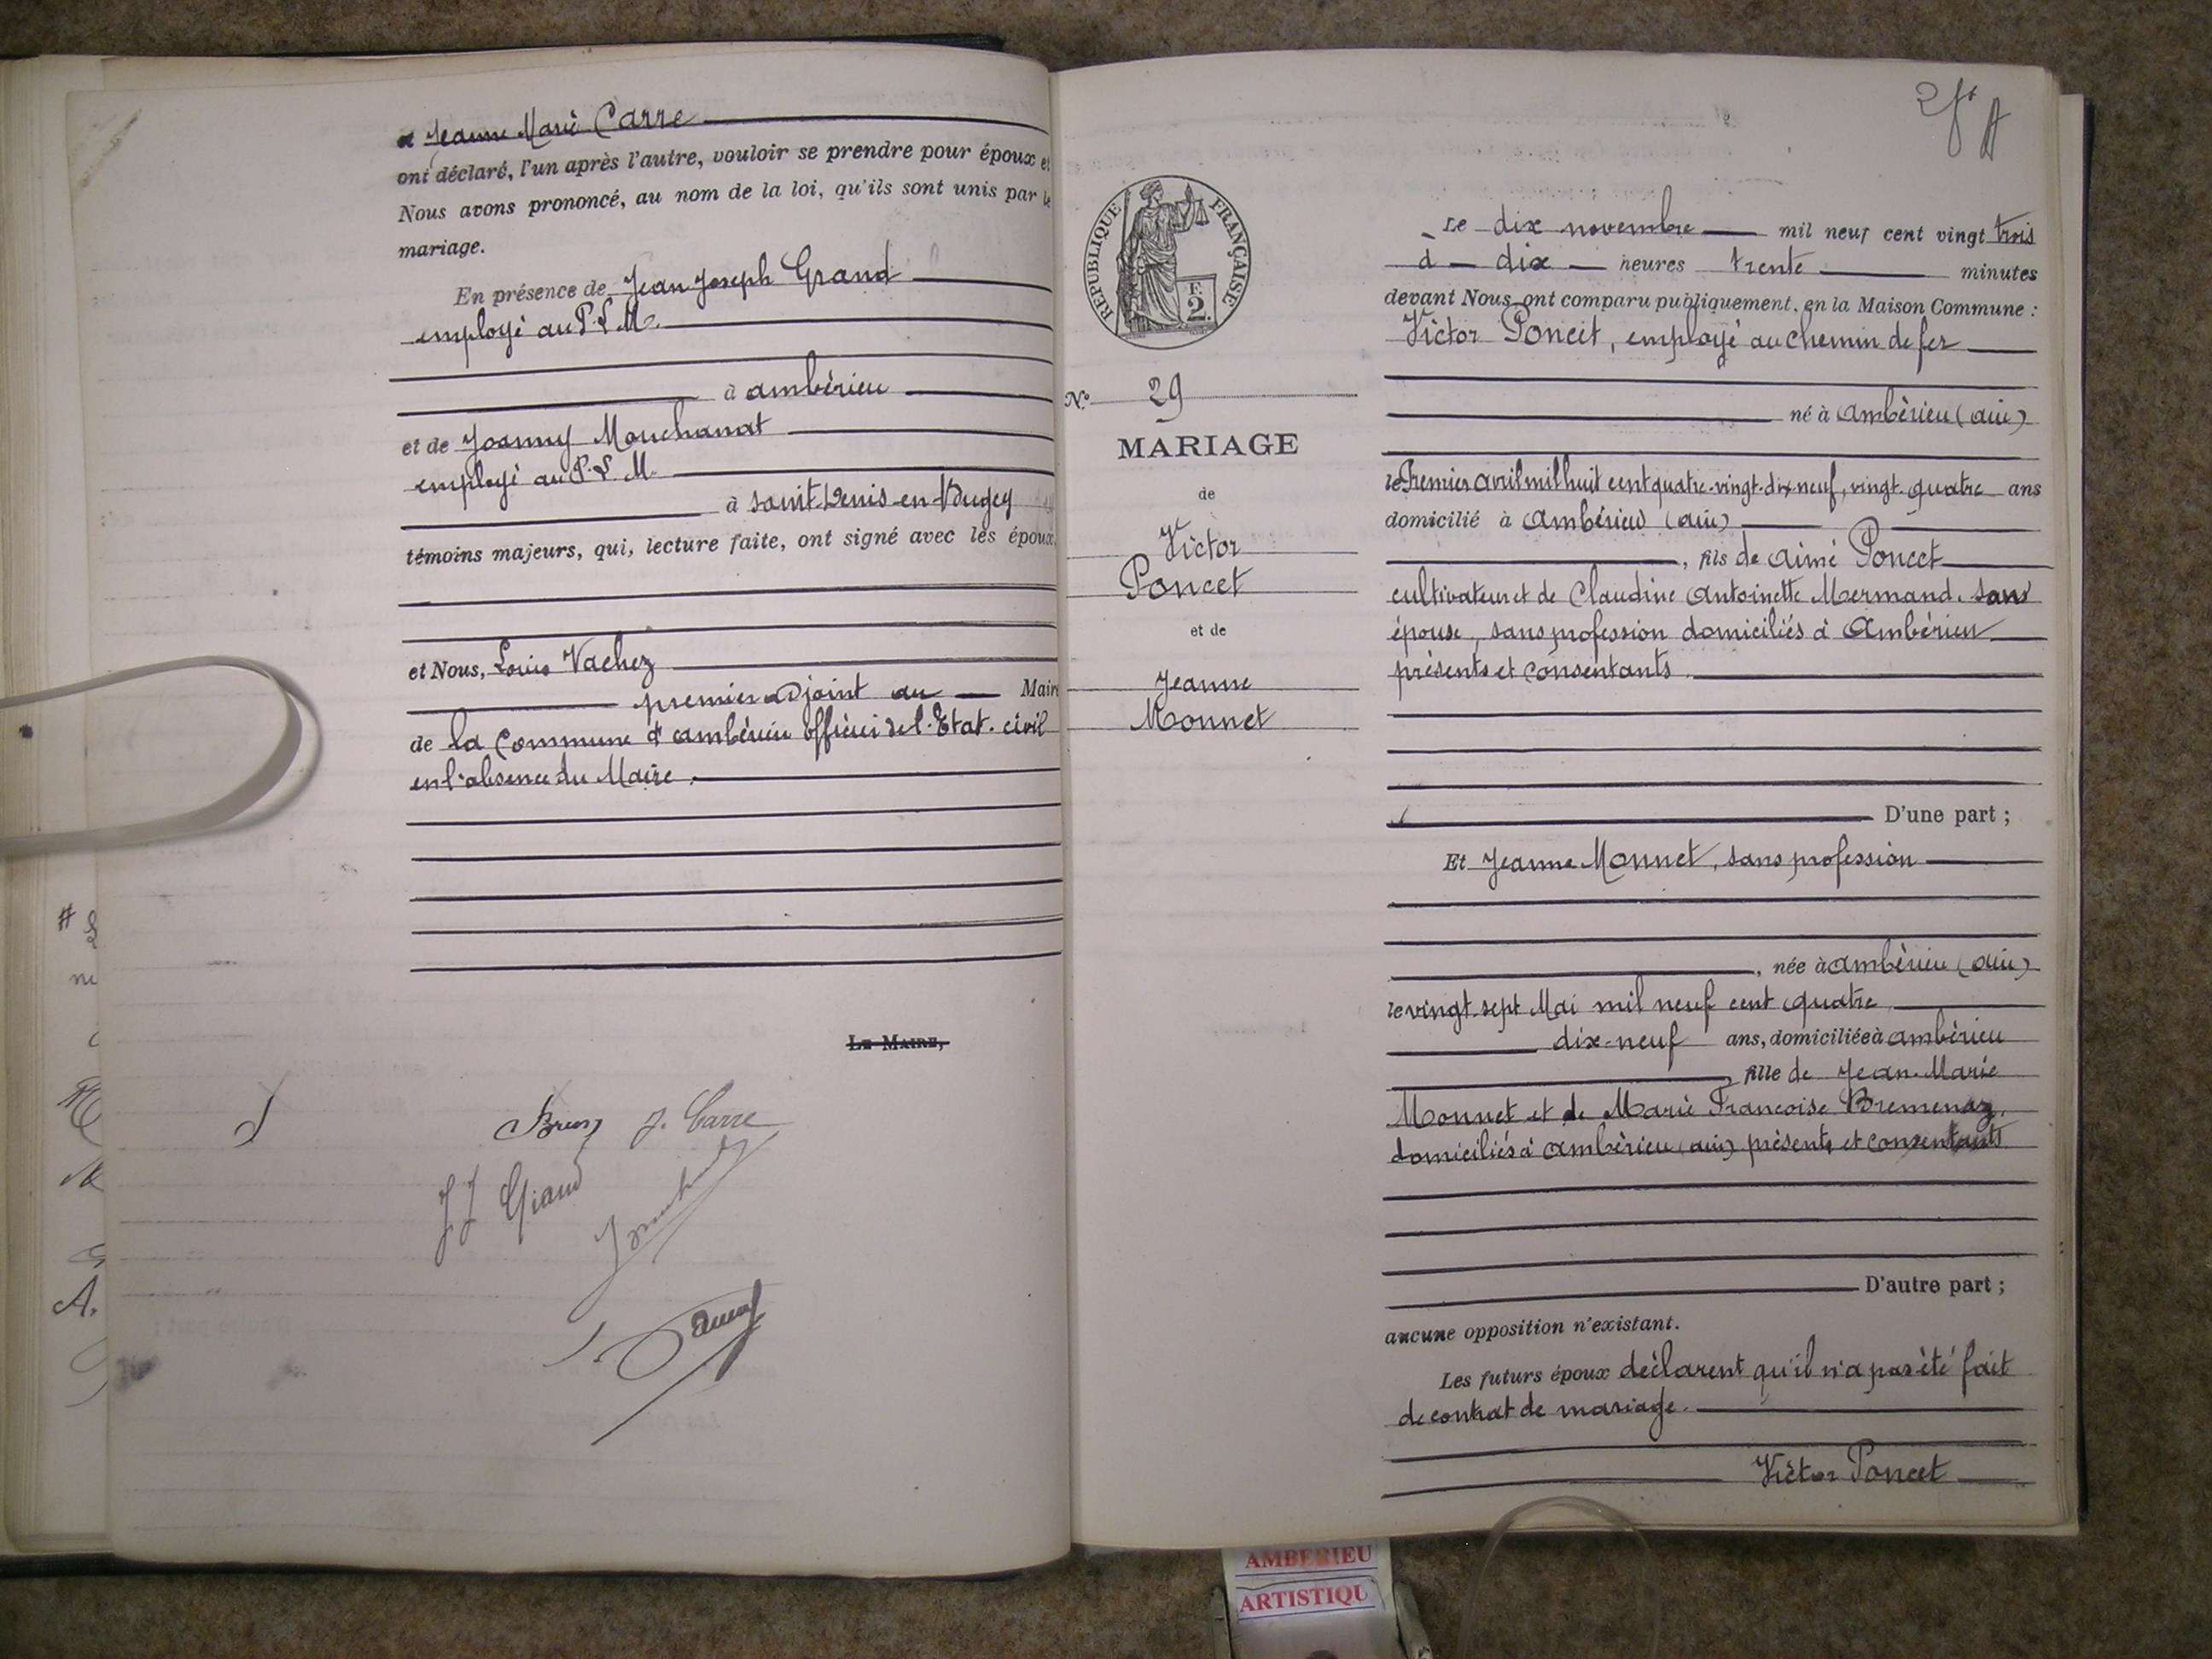 et Jeanne Marie Carre
ont déclaré, l'un après l'autre, vouloir se prendre pour époux et
Nous avons prononcé, au nom de la loi, qu'ils sont unis par le
mariage.
En présence de Jean Joseph Grand
employé au P.L.M.
à ambérieu
et de Joanny Mouchanat
employé au P.L.M.
à saint-Denis-en-Bugey
témoins majeurs, qui, lecture faite, ont signé avec les époux
et Nous, Louis Vachez
premier adjoint au Maire
de la Commune d'ambérieu officier de l'Etat-civil
en l'absence du Maire.
LE MAIRE,
J. Carre
JJ Grand
REPUBLIQUE FRANÇAISE
F.
2.
N° 29
MARIAGE
de
Victor
Poncet
et de
Jeanne
Monnet
Le dix novembre mil neuf cent vingt trois
à dix heures trente minutes
devant Nous ont comparu publiquement, en la Maison Commune :
Victor Poncet, employé au chemin de fer
né à Ambérieu (ain)
le Premier avril mil huit cent quatre-vingt-dix-neuf, vingt-quatre ans
domicilié à Ambérieu (ain)
, fils de aimé Poncet
cultivateur et de Claudine Antoinette Mermand. son
épouse, sans profession domiciliés à Ambérieu
présents et consentants
D'une part ;
Et Jeanne Monnet, sans profession
, née à ambérieu (ain)
le vingt-sept Mai mil neuf cent quatre
dix-neuf ans, domiciliée à ambérieu
, fille de Jean-Marie
Monnet et de Marie Françoise Bremenaz,
domiciliés à Ambérieu (ain) présents et consentants
D'autre part ;
aucune opposition n'existant.
Les futurs époux déclarent qu'il n'a pas été fait
de contrat de mariage.
Victor Poncet
AMBERIEU
ARTISTIQU